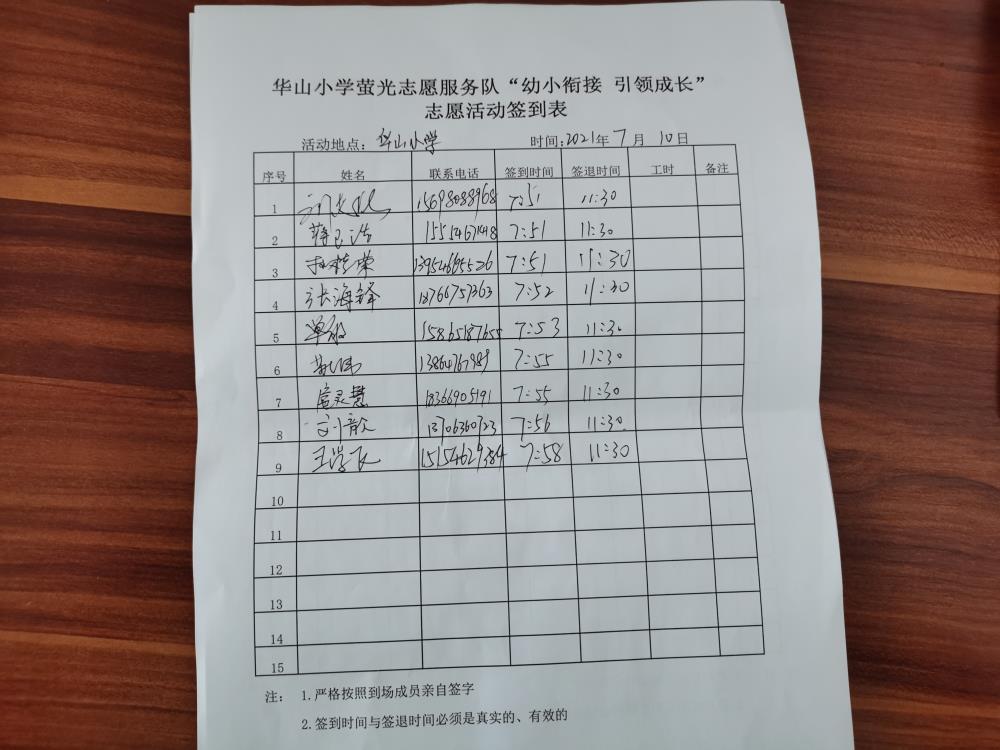 华山小学萤光志愿服务队“幼小衔接 引领成长”
志愿活动签到表
活动地点：华山小学 时间：2021年7月10日
序号 姓名 联系电话 签到时间 签退时间 工时 备注
1 15698088968 7:51 11:30
2 15554671418 7:51 11:30
3 13954695526 7:51 11:30
4 张海锋 18766757363 7:52 11:30
5 单敏 15865187655 7:53 11:30
6 13864767989 7:55 11:30
7 扈灵慧 18366905191 7:55 11:30
8 刘歆 13706360723 7:56 11:30
9 王学飞 15154629384 7:58 11:30
10
11
12
13
14
15
注： 1.严格按照到场成员亲自签字
2.签到时间与签退时间必须是真实的、有效的